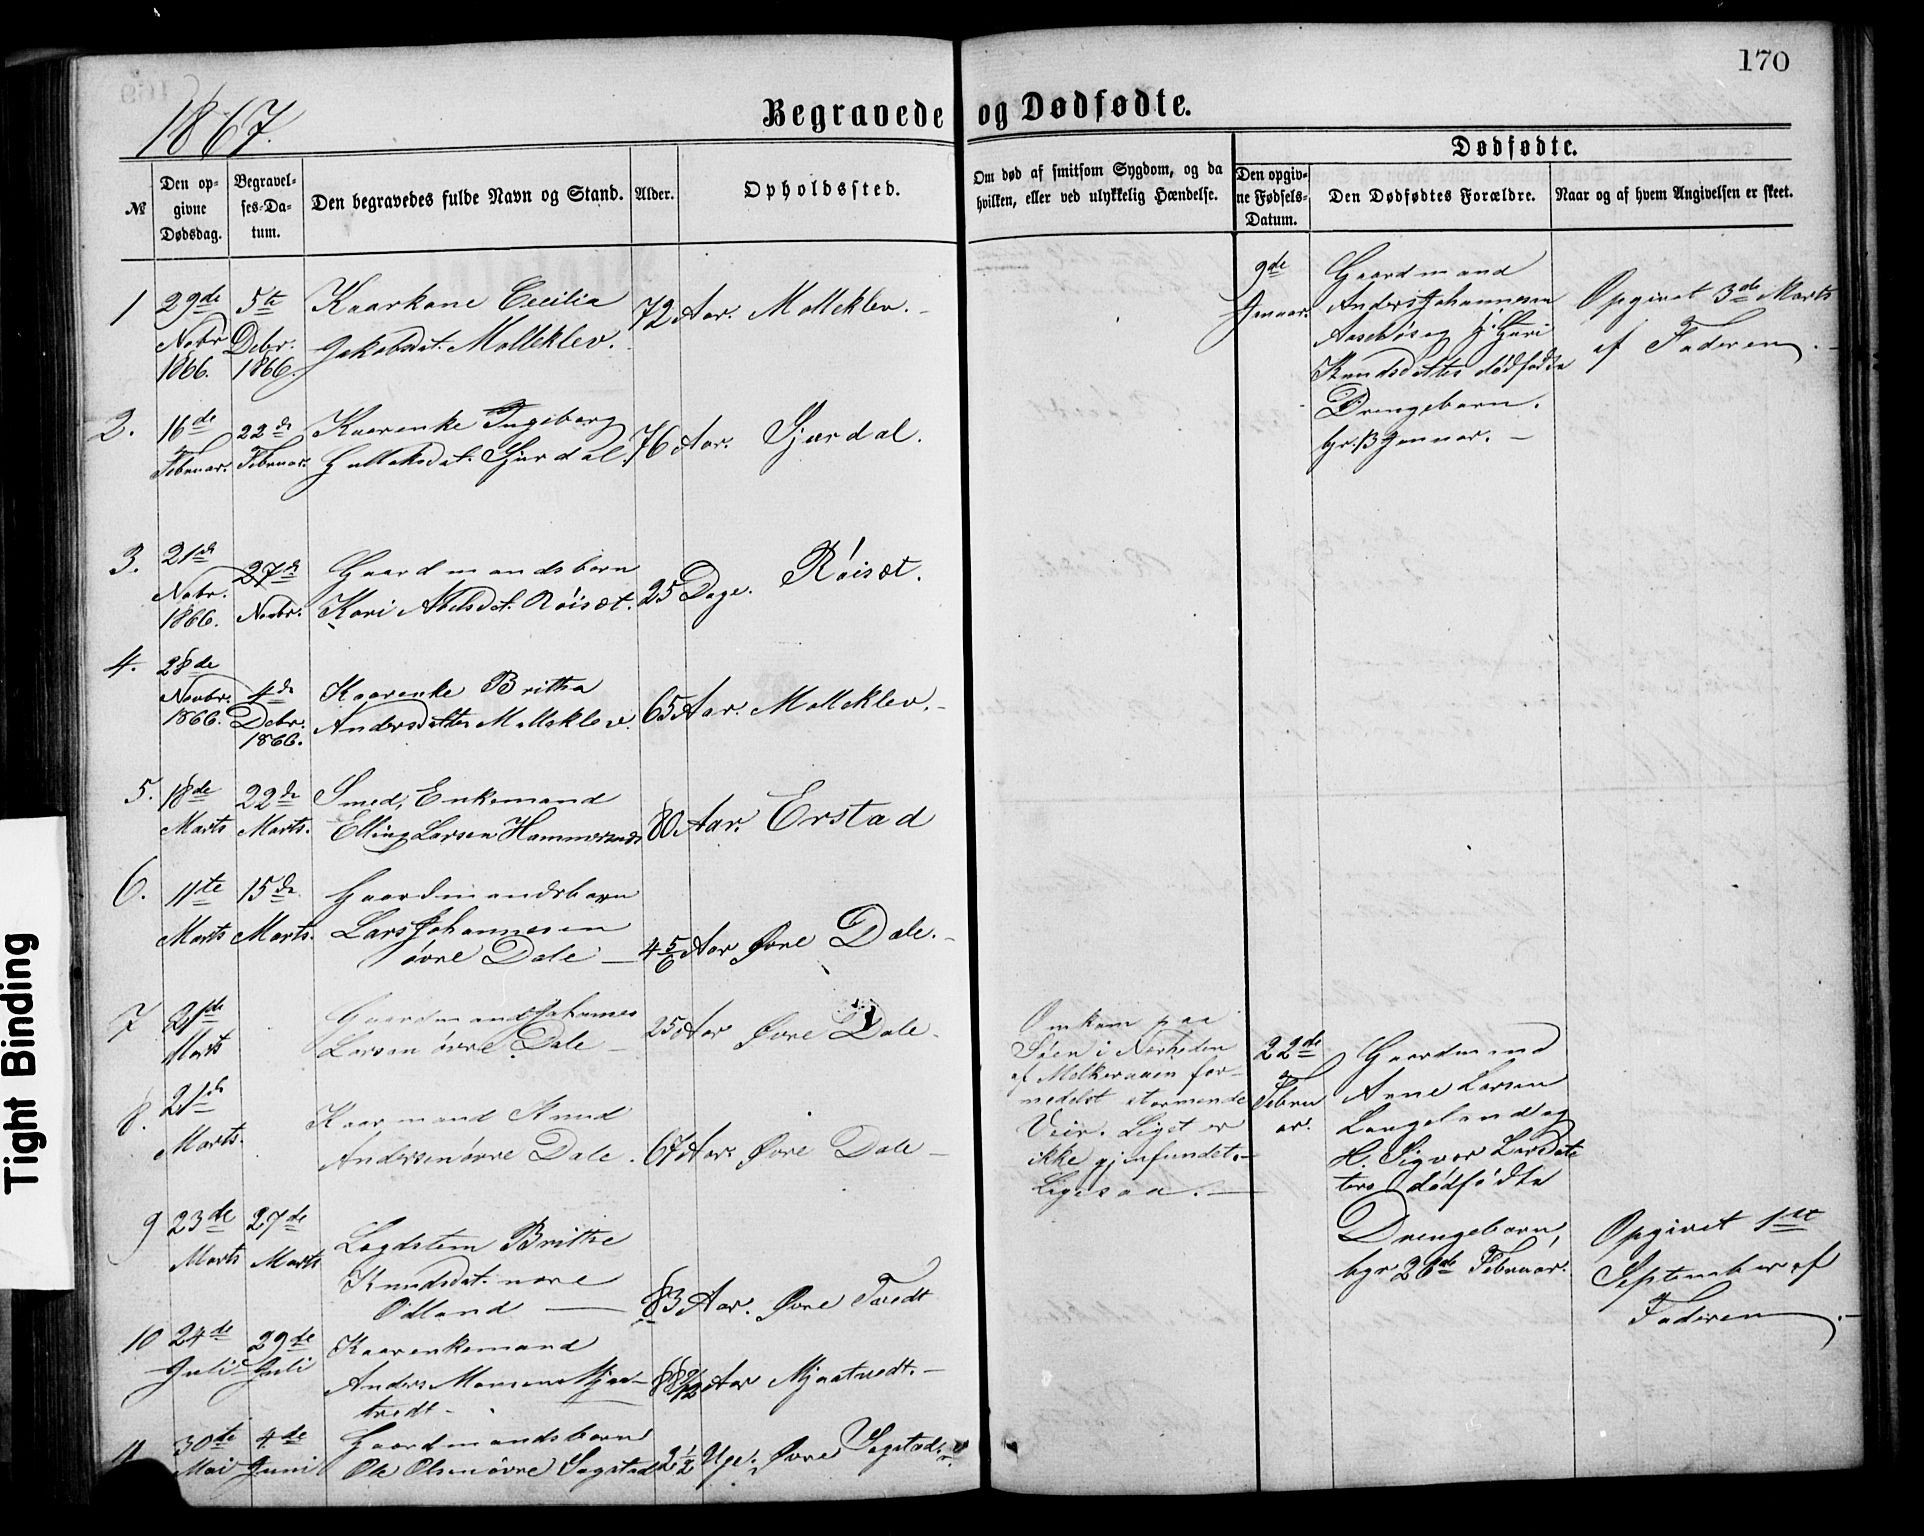 170
1867.
Begravede og Dødfødte.
№
Den op-
givne
Dødsdag.
Begravel-
ses-Da-
tum.
Den begravedes fulde Navn og Stand.
Alder.
Opholdssted.
Om død af smitsom Sygdom, og da
hvilken, eller ved ulykkelig Hændelse.
Dødfødte.
Den opgiv-
ne Fødsels-
Datum.
Den Dødfødtes Forældre.
Naar og af hvem Angivelsen er skeet.
1
29de
Novbr
1866.
5te
Debr.
1866.
Kaarkone Cecilia
Jakobsdat. Molleklev.
72 Aar.
Molleklev.
9de
Januar.
Gaardmand
Anders Johannesen
Aasebø og H. Guri
Knudsdatter dødfødte
Drengebarn.
bgr. 13 Januar.
Opgivet 3de Marts
af Faderen.
2.
16de
Februar.
22de
Februar.
Kaarenke Ingeborg
Hallaksdat. Gjerdal.
76 Aar.
Gjerdal.
3.
21de
Nobr.
1866.
27de
Novbr.
Gaardmandsbarn
Kari Abelsdat. Røisæt.
25 Dage.
Røisæt.
4.
28de
Novbr.
1866.
4de
Debr.
1866.
Kaarenke Britha
Andersdatter Molleklev.
65 Aar.
Molleklev.
5.
18de
Marts
22de
Marts.
Smed, Enkemand
Elling Larsen Hammersands
80 Aar.
Erstad
6.
11te
Marts
15de
Marts.
Gaardmandsbarn
Lars Johannesen
øvre Dale
4 5/6 Aar
Øvre Dale.
7
21de
Marts
Gaardmand Johannes
Larsen øvre Dale
25 Aar
Øvre Dale
Omkom paa
Søen i Nærheden
af Molkeraaen for-
medelst stormende
Veir. Liget er
ikke gjenfundet.
22de
Febru
ar.
Gaardmand
Arne Larsen
Langeland og
H. Sigvor Larsdat
ters dødfødte
Drengebarn,
bgr. 26de Februar.
Opgivet 1ste
September af
Faderen.
8.
21de
Marts.
Kaarmand Knud
Andersen øvre Dale.
67 Aar.
Øvre Dale
Ligesaa.
9
23de
Marts
27de
Marts
Lægdslem Brithe
Knudsdat. nore
Odland
83 Aar.
Øvre Tvedt
10
24de
Juli
29de
Juli
Kaarenkemand
Anders Monsen Mjaa-
tvedt
88 2/12 Aar
Mjaatvedt.
11
30te
Mai
4de
Juni
Gaardmandsbarn
Ole Olsen øvre Sagstad
2 1/2 Uge.
Øvre Sagstad.
Tight Binding